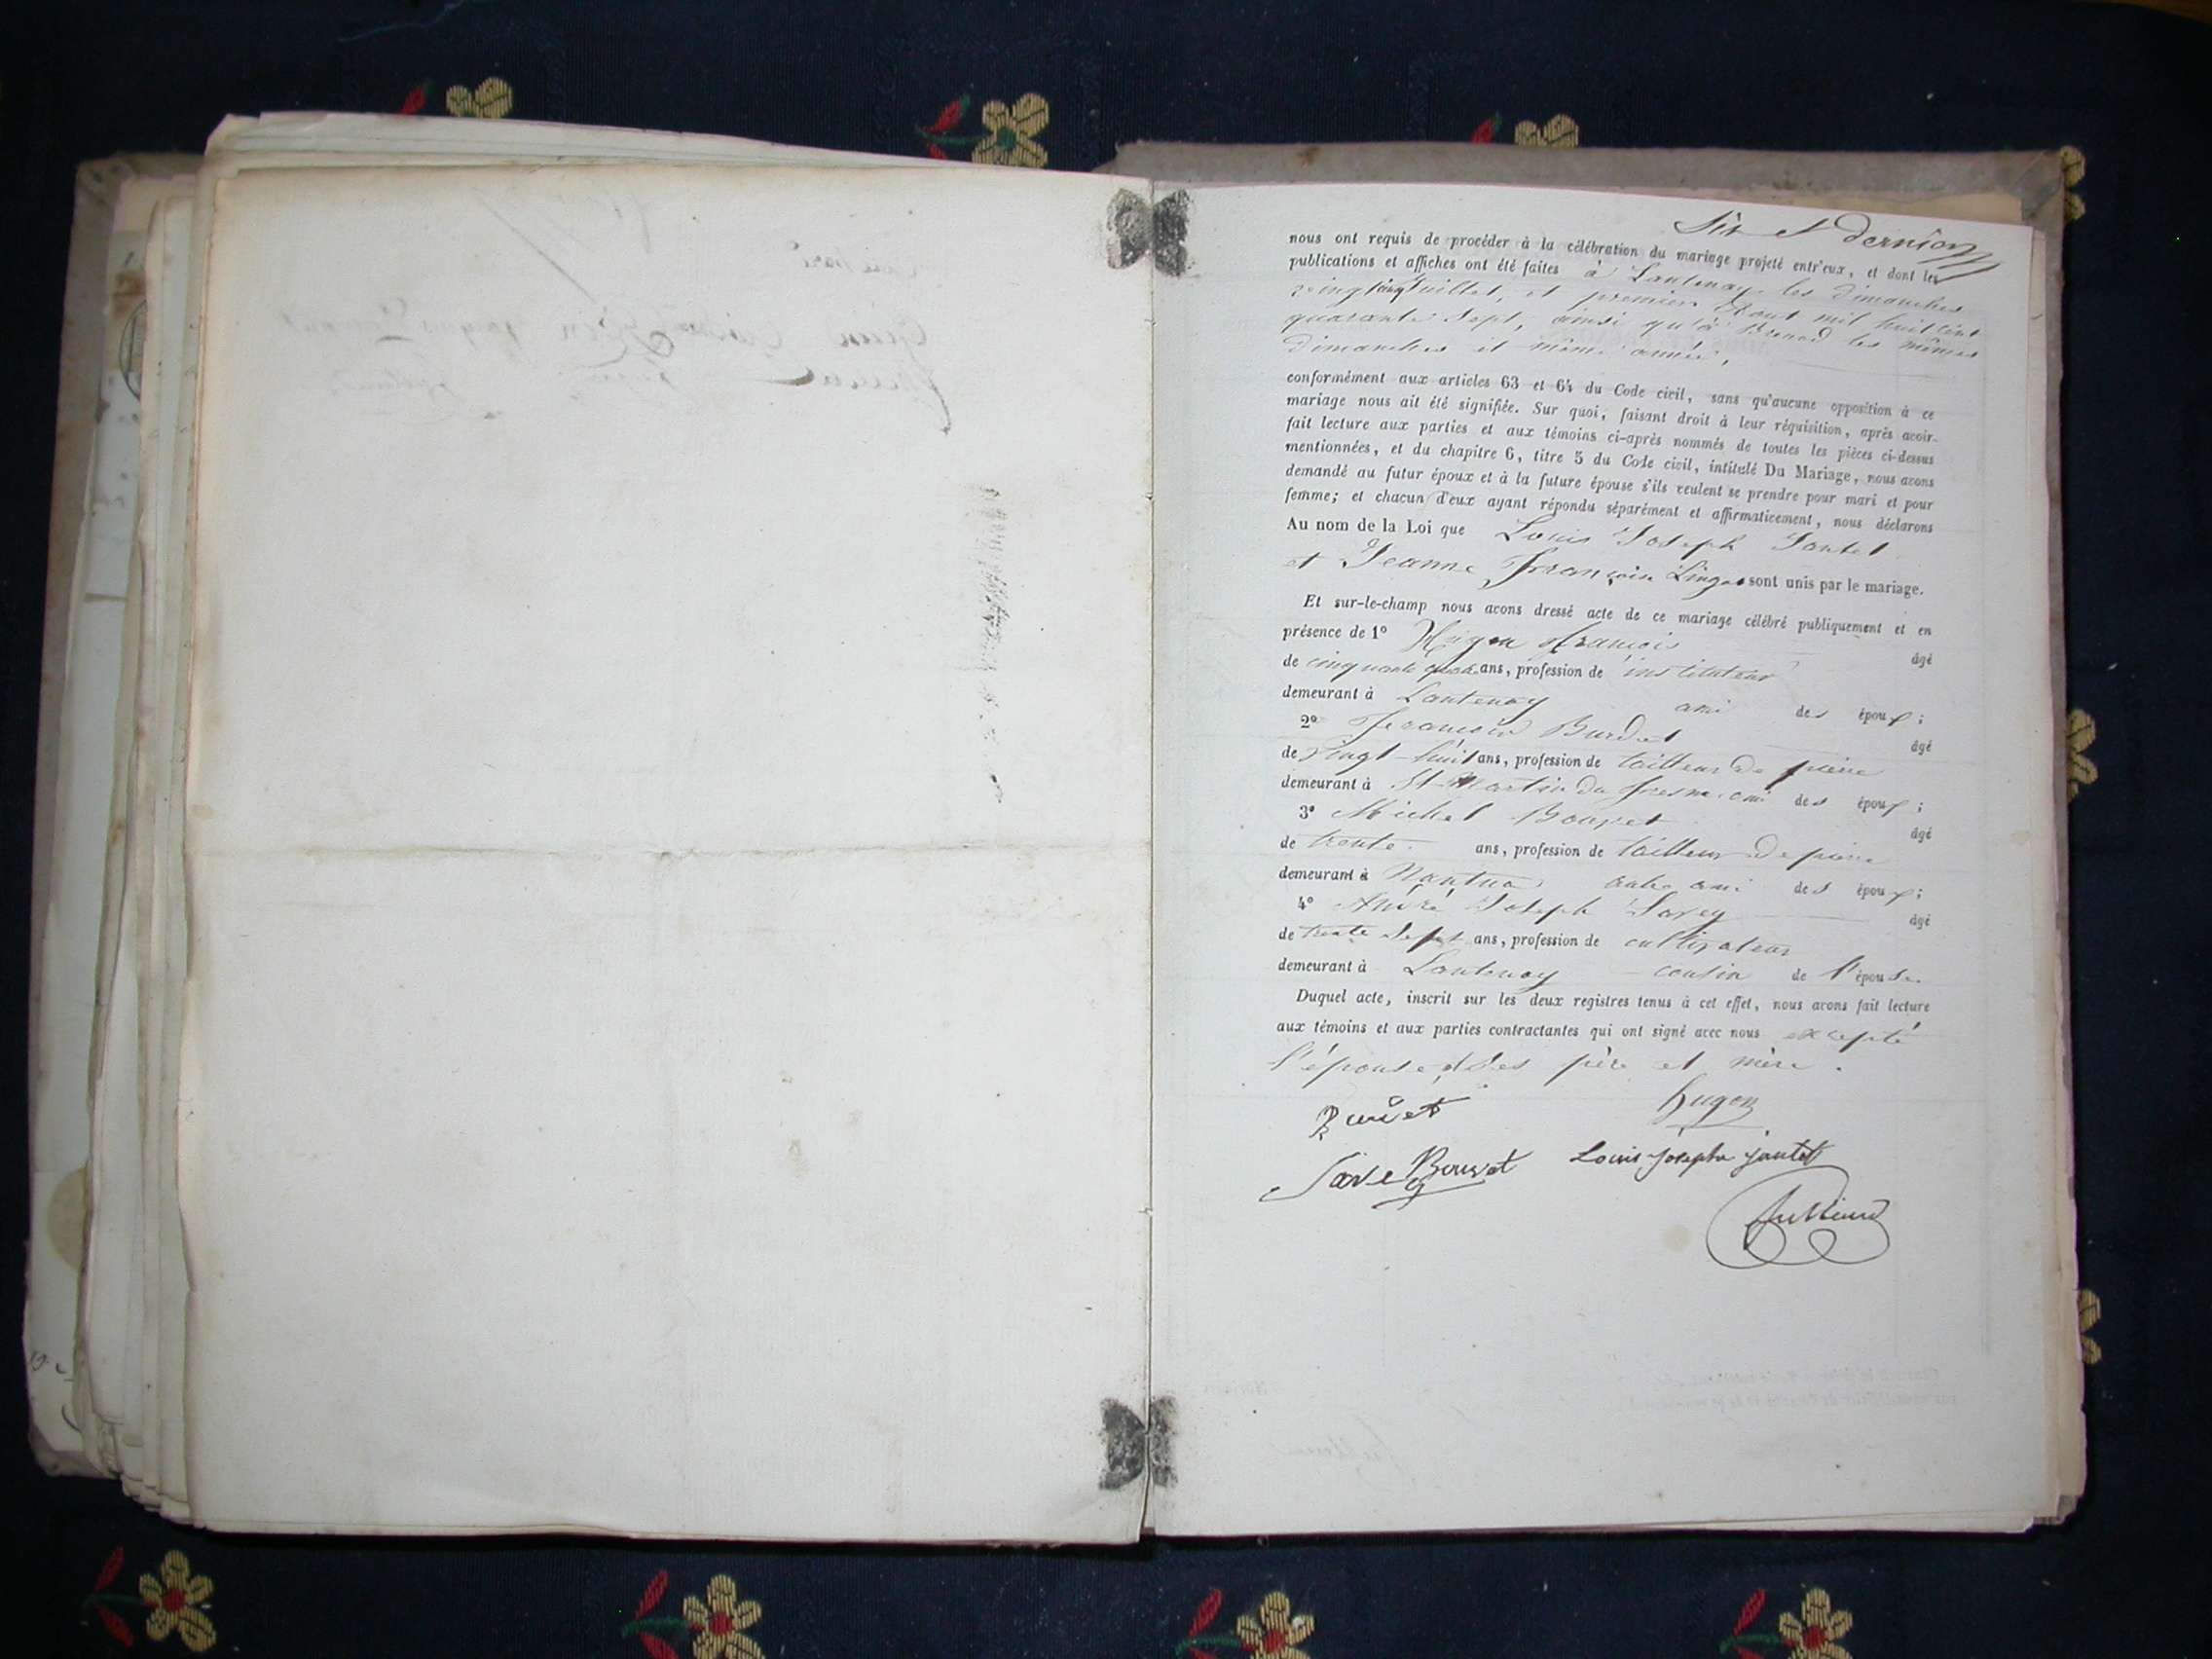 Six et dernier
nous ont requis de procéder à la célébration du mariage projeté entr'eux, et dont les
publications et affiches ont été faites à Lantenay les dimanches
vingt cinq Juillet, et premier Aout mil huit cent
quarante Sept, ainsi qu'à Brenod les mêmes
dimanches et même année,
conformément aux articles 63 et 64 du Code civil, sans qu'aucune opposition à ce
mariage nous ait été signifiée. Sur quoi, faisant droit à leur réquisition, après avoir
fait lecture aux parties et aux témoins ci-après nommés de toutes les pièces ci-dessus
mentionnées, et du chapitre 6, titre 5 du Code civil, intitulé Du Mariage, nous avons
demandé au futur époux et à la future épouse s'ils veulent se prendre pour mari et pour
femme; et chacun d'eux ayant répondu séparément et affirmativement, nous déclarons
Au nom de la Loi que Louis Joseph Jantet
et Jeanne Françoise sont unis par le mariage.
Et sur-le-champ nous avons dressé acte de ce mariage célébré publiquement et en
présence de 1º Hugon François âgé
de cinquante ans, profession de instituteur
demeurant à Lantenay ami des époux;
2º François Burdet âgé
de vingt-huit ans, profession de tailleur de pierre
demeurant à St Martin du fresne ami des époux;
3º Michel Bouvet âgé
de trente ans, profession de tailleur de pierre
demeurant à Nantua autre ami des époux;
4º André Joseph Savey âgé
de trente sept ans, profession de cultivateur
demeurant à Lantenay cousin de l'épouse.
Duquel acte, inscrit sur les deux registres tenus à cet effet, nous avons fait lecture
aux témoins et aux parties contractantes qui ont signé avec nous excepté
l'épouse et ses père et mère.
Burdet Hugon
Save Bouvet Louis joseph jantet